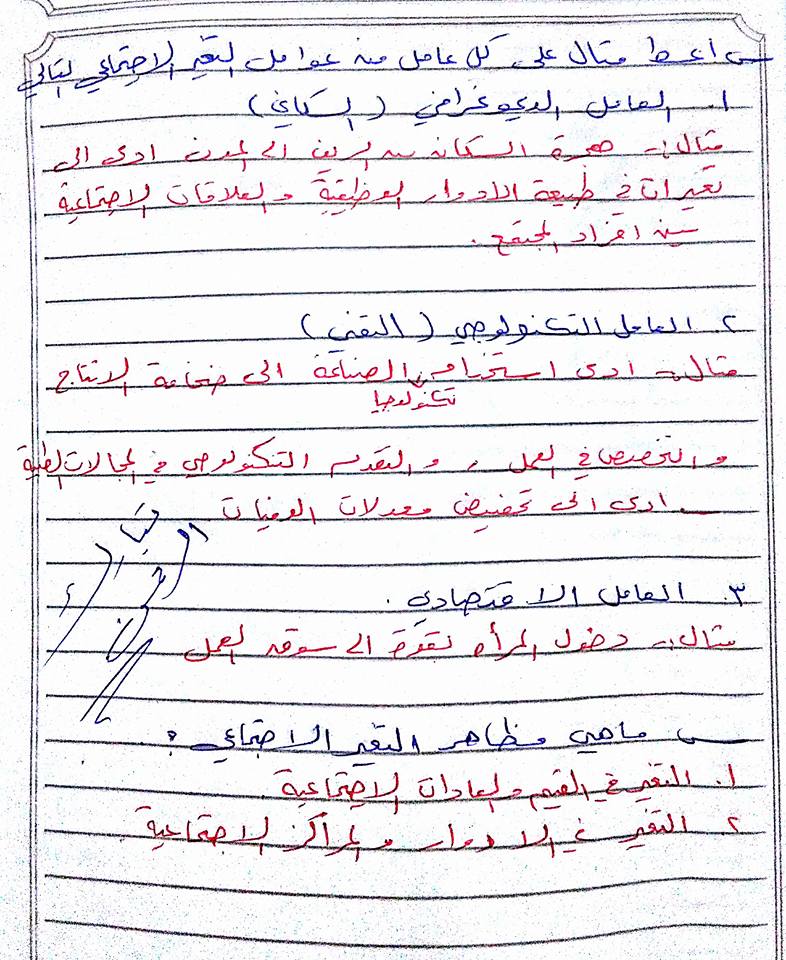 س/ أعط مثال على كل عامل من عوامل التغير الاجتماعي التالي
١. العامل الديموغرافي (السكاني)
مثال:- هجرة السكان من الريف الى المدن ادى الى
تغيرات في طبيعة الادوار الوظيفية والعلاقات الاجتماعية
بين افراد المجتمع.
٢. العامل التكنولوجي (التقني)
مثال:- ادى استخدام الصناعة الى ضخامة الانتاج
تكنولوجيا
والتخصص في العمل, والتقدم التكنولوجي في المجالات الطبية
ادى الى تخفيض معدلات الوفيات
٣. العامل الاقتصادي.
مثال:- دخول المرأه بقوة الى سوق العمل
س/ ماهي مظاهر التغير الاجتماعي ؟
١. التغير في القيم والعادات الاجتماعية.
٢. التغير في الادوار والمراكز الاجتماعية.